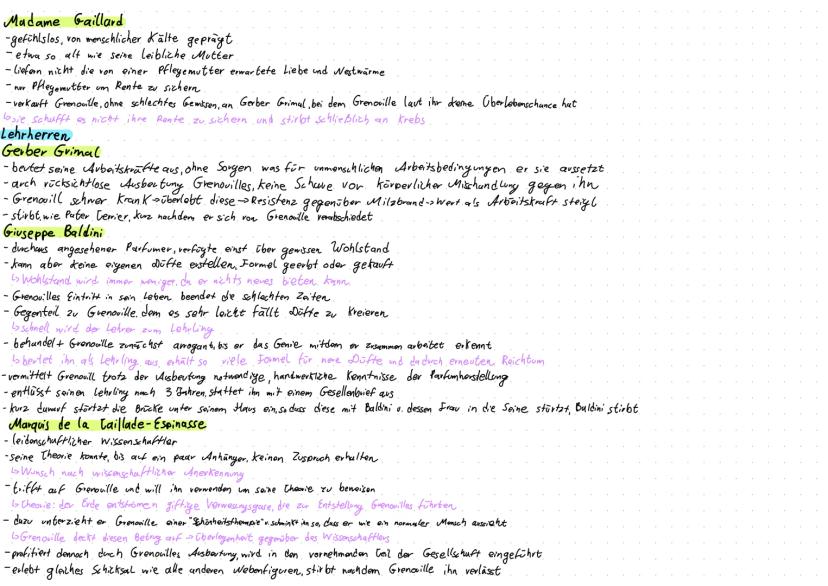 Madame Gaillard
-gefühlslos, von menschlicher Kälte geprägt
-etwa so alt wie seine leibliche Mutter
-liefern nicht die von einer Pflegemutter erwartete Liebe und Nestwärme
-nur Pflegemutter um Rente zu sichern
-verkauft Grenouille, ohne schlechtes Gewissen, an Gerber Grimal, bei dem Grenouille laut ihr keine Überlebenschance hat
↳sie schafft es nicht ihre Rente zu sichern und stirbt schließlich an Krebs
Lehrherren
Gerber Grimal
-beutet seine Arbeitskräfte aus, ohne Sorgen was für unmenschlichen Arbeitsbedingungen er sie aussetzt
-auch rücksichtlose Ausbeutung Grenouilles, keine Scheue vor körperlicher Mischandlung gegen ihn
-Grenouill schwer Krank→überlebt diese→Resistenz gegenüber Milzbrand→Wert als Arbeitskraft steigt
-stirbt, wie Pater Terrier, kurz nachdem er sich von Grenouille verabschiedet
Giuseppe Baldini
-durchaus angesehener Parfumer, verfügte einst über gewissen Wohlstand
-kann aber keine eigenen Düfte erstellen, Formel geerbt oder gekauft
↳Wohlstand wird immer weniger, da er nichts neues bieten kann
-Grenouilles Eintritt in sein Leben beendet die schlechten Zeiten
-Gegenteil zu Grenouille, dem es sehr leicht fällt Düfte zu Kreieren
↳schnell wird der Lehrer zum Lehrling
-behandelt Grenouille zunächst arrogant, bis er das Genie mitdem er zusammen arbeitet erkennt
↳beutet ihn als Lehrling aus, erhält so viele Formel für neue Düfte und dadurch erneuten Reichtum
-vermittelt Grenouill trotz der Ausbeutung notwendige, handwerkliche Kenntnisse der Parfumherstellung
-entlässt seinen Lehrling nach 3 Jahren, stattet ihn mit einem Gesellenbrief aus
-kurz darauf stürtzt die Brücke unter seinem Haus ein, sodass diese mit Baldini u. dessen Frau in die Seine stürtzt, Baldini stirbt
Marquis de la Taillade-Espinasse
-leidenschaftlicher Wissenschaftler
-seine Theorie konnte, bis auf ein paar Anhänger, keinen Zuspruch erhalten
↳Wunsch nach wissenschaftlicher Anerkennung
-trifft auf Grenouille und will ihn verwenden um seine Theorie zu beweisen
↳Theorie: der Erde entströmen giftige Verwesungsgase, die zur Entstellung Grenouilles führten
-dazu unterzieht er Grenouille einer "Schönheitstherapie" u. schminkt ihn so, dass er wie ein normaler Mensch aussieht
↳Grenouille deckt diesen Betrug auf→Überlegenheit gegenüber des Wissenschaftlers
-profitiert dennoch durch Grenouilles Ausbeutung, wird in den vornehmenden Teil der Gesellschaft eingeführt
-erlebt gleiches Schicksal wie alle anderen Nebenfiguren, stirbt nachdem Grenouille ihn verlässt